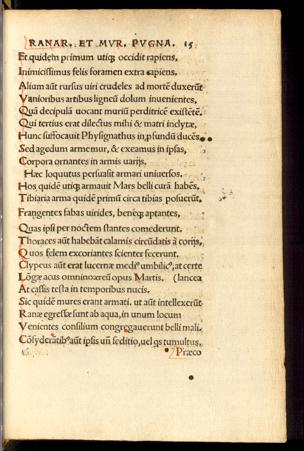 RANAR. ET MVR. PVGNA. 15
Et quidem primum utiq; occidit rapiens,
Inimicissimus felis foramen extra rapiens.
Alium aūt rursus uiri crudeles ad mortē duxerūt
Vanioribus artibus ligneū dolum inuenientes,
Quā decipulā uocant muriū perditricē existētē.
Qui tertius erat dilectus mihi & matri inclytæ,
Hunc suffocauit Physignathus in ꝓfundū ducēs.
Sed agedum armemur, & exeamus in ipsas,
Corpora ornantes in armis uarijs.
Hæc loquutus persuasit armari uniuersos.
Hos quidē utiq; armauit Mars belli curā habēs,
Tibiaria arma quidē primū circa tibias posuerūt,
Frangentes fabas uirides, beneq; aptantes,
Quas ipsi per noctem stantes comederunt.
Thoraces aūt habebāt calamis circūdatis à corijs,
Quos felem excoriantes scienter fecerunt.
Clypeus aūt erat lucernæ mediꝰ umbilicꝰ, at certe
Lōgæ acus omninoæreū opus Martis. (lancea
At cassis testa in temporibus nucis.
Sic quidē mures erant armati. ut aūt intellexerūt
Ranæ egressæ sunt ab aqua, in unum locum
Venientes consilium congregauerunt belli mali.
Cōsyderātibꝰ aūt ipsis un seditio, uel qs tumultus,
Præco